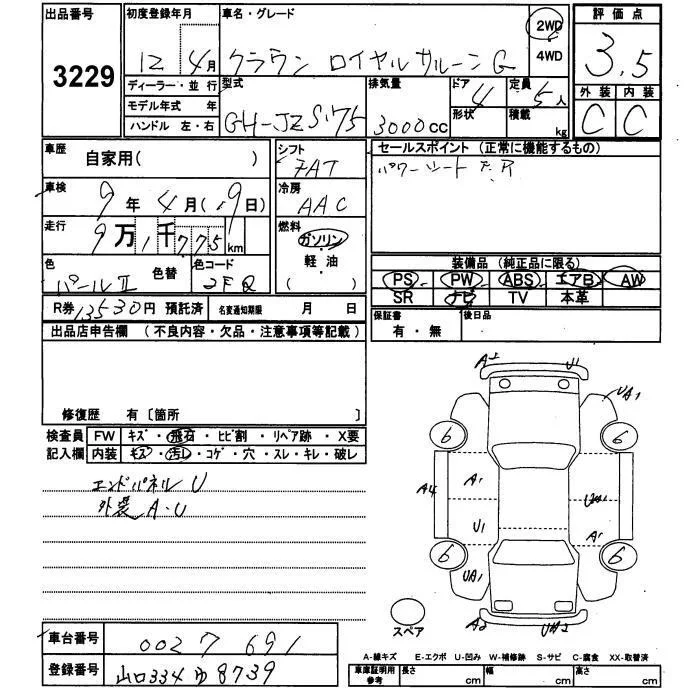 出品番号 3229
初度登録年月 12年 4月
車名・グレード クラウン ロイヤルサルーンG
2WD
4WD
評価点 3.5
外装 C 内装 C
ディーラー・並行
モデル年式 年
ハンドル 左・右
型式 GH-JZS175
排気量 3000cc
ドア 4
形状
定員 5人
積載 kg
車歴 自家用( )
シフト FAT
セールスポイント (正常に機能するもの)
パワーシート F.R
車検 9年 4月(19日)
冷房 AAC
走行 9万1千775km
燃料 ガソリン
軽・油
( )
色 パールII 色替 色コード 2FQ
装備品 (純正品に限る)
PS PW ABS エアB AW
SR ナビ TV 本革
R券 13530円 預託済 名変通知期限 月 日
保証書 有・無
後日品
出品店申告欄 (不良内容・欠品・注意事項等記載)
修復歴 有〔箇所 〕
検査員 FW キズ・飛石・ヒビ割・リペア跡・X要
記入欄 内装 キズ・汚レ・コゲ・穴・スレ・キレ・破レ
エンドパネル U
外装 A.U
A2 U1
UA1
6 6
A4 A1
U1 A1
6 6
UA1
スペア
A2 UA2
車台番号 0027691
登録番号 山口334ゆ8739
A-線キズ E-エクボ U-凹み W-補修跡 S-サビ C-腐食 XX-取替済
車庫証明用参考 長さ cm 幅 cm 高さ cm